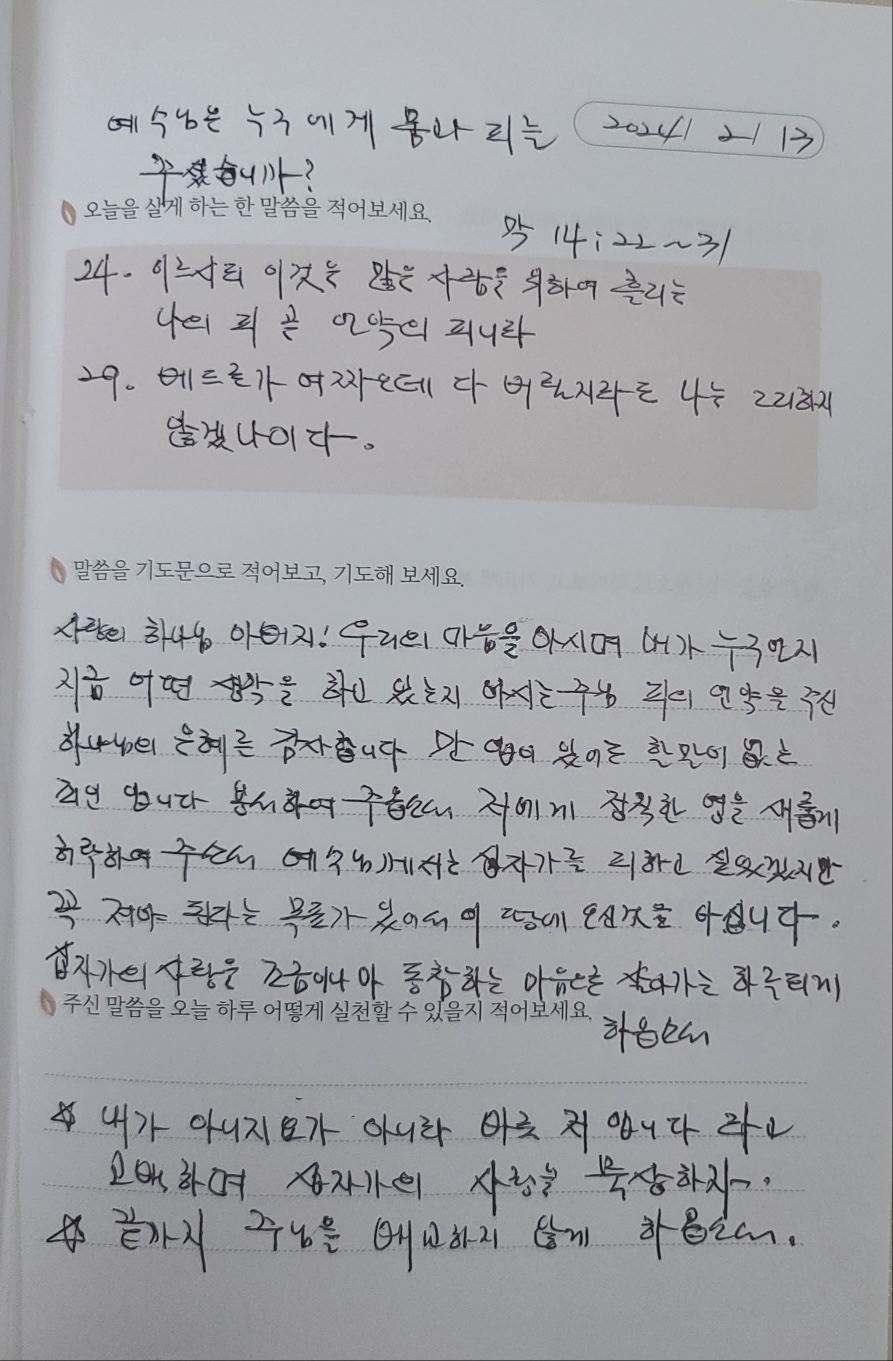 예수님은 누구에게 몸과 피를 2024/ 2/ 13
주셨습니까?
오늘을 살게 하는 한 말씀을 적어보세요.
막 14:22~31
24. 이르시되 이것은 많은 사람을 위하여 흘리는
나의 피 곧 언약의 피니라
29. 베드로가 여짜오되 다 버릴지라도 나는 그리하지
않겠나이다.
말씀을 기도문으로 적어보고, 기도해 보세요.
사랑의 하나님 아버지! 우리의 마음을 아시며 내가 누구인지
지금 어떤 생각을 하고 있는지 아시는 주님 피의 언약을 주신
하나님의 은혜를 감사합니다 만 입이 있어도 할 말이 없는
죄인 입니다 용서하여 주옵소서 저에게 정직한 영을 새롭게
허락하여 주소서 예수님께서는 십자가를 피하고 싶었겠지만
꼭 져야 된다는 목표가 있어서 이 땅에 오신것을 아십니다.
십자가의 사랑을 조금이나마 동참하는 마음으로 살아가는 하루되게
주신 말씀을 오늘 하루 어떻게 실천할 수 있을지 적어보세요.
하옵소서
☆ 내가 아니지요가 아니라 바로 저 입니다 라고
고백하며 십자가의 사랑을 묵상하자~.
☆ 끝까지 주님을 배교하지 않게 하옵소서.